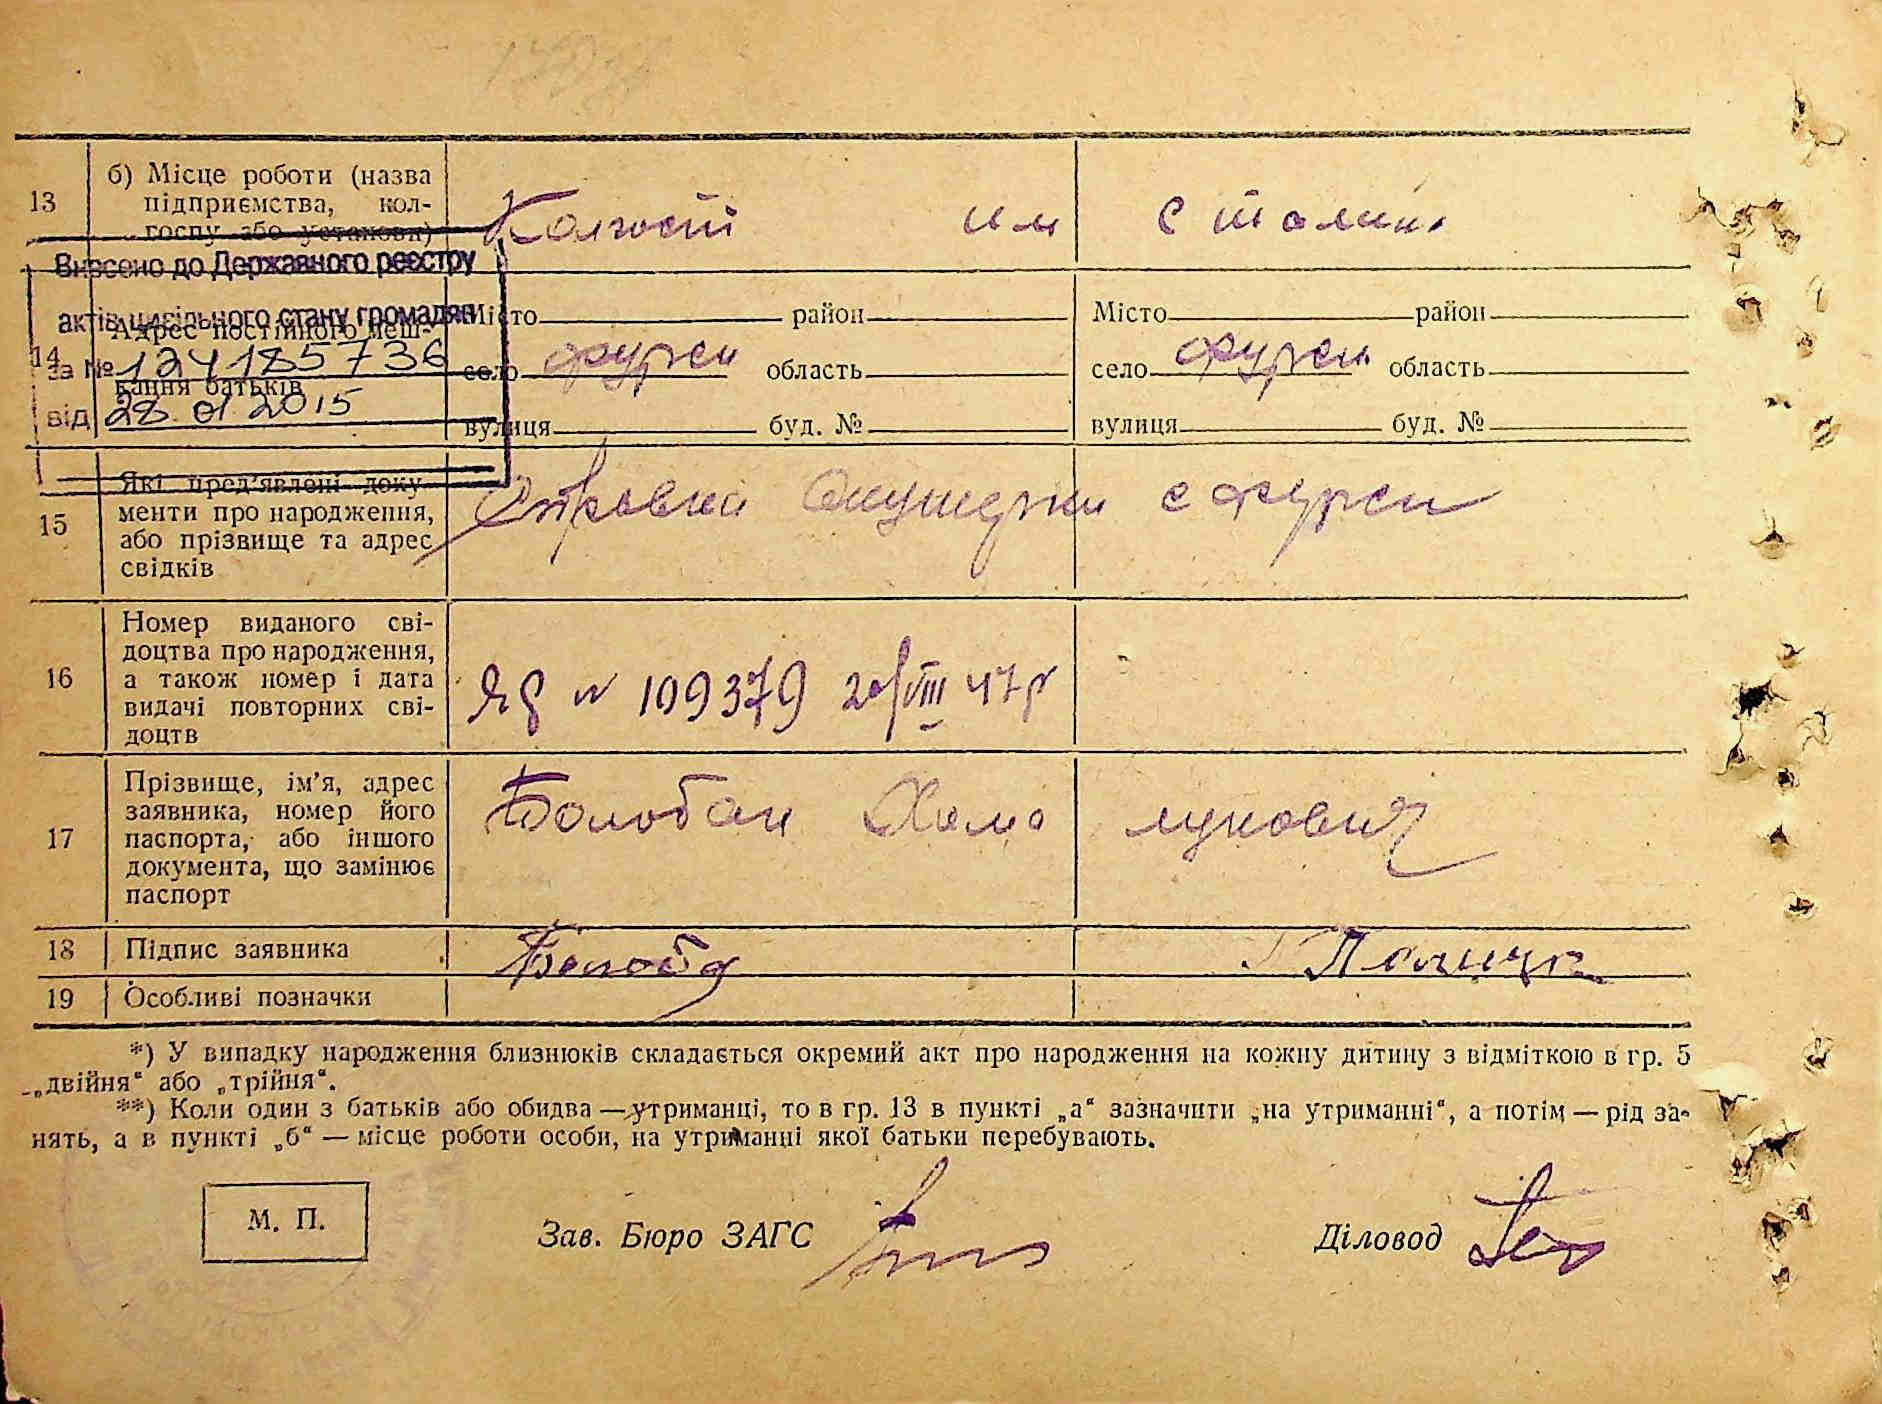 13 б) Місце роботи (назва
підприємства, кол-
госпу або установи)
Колгосп им Сталина
Внесено до Державного реєстру
актів цивільного стану громадян
за № 124185736
від 28.01.2015
14 Адрес постійного меш-
кання батьків
Місто район Місто район
село Фурси область село Фурси область
вулиця буд. № вулиця буд. №
15 Які пред'явлені доку-
менти про народження,
або прізвище та адрес
свідків
Справка Акушерки с Фурси
16 Номер виданого сві-
доцтва про народження,
а також номер і дата
видачі повторних сві-
доцтв
ЯД № 109379 20/VIII 47р
17 Прізвище, ім'я, адрес
заявника, номер його
паспорта, або іншого
документа, що замінює
паспорт
Болобан Хома Лукович
18 Підпис заявника
19 Особливі позначки
*) У випадку народження близнюків складається окремий акт про народження на кожну дитину з відміткою в гр. 5
„двійня“ або „трійня“.
**) Коли один з батьків або обидва — утриманці, то в гр. 13 в пункті „а“ зазначити „на утриманні“, а потім — рід за-
нять, а в пункті „б“ — місце роботи особи, на утриманні якої батьки перебувають.
М. П. Зав. Бюро ЗАГС Діловод